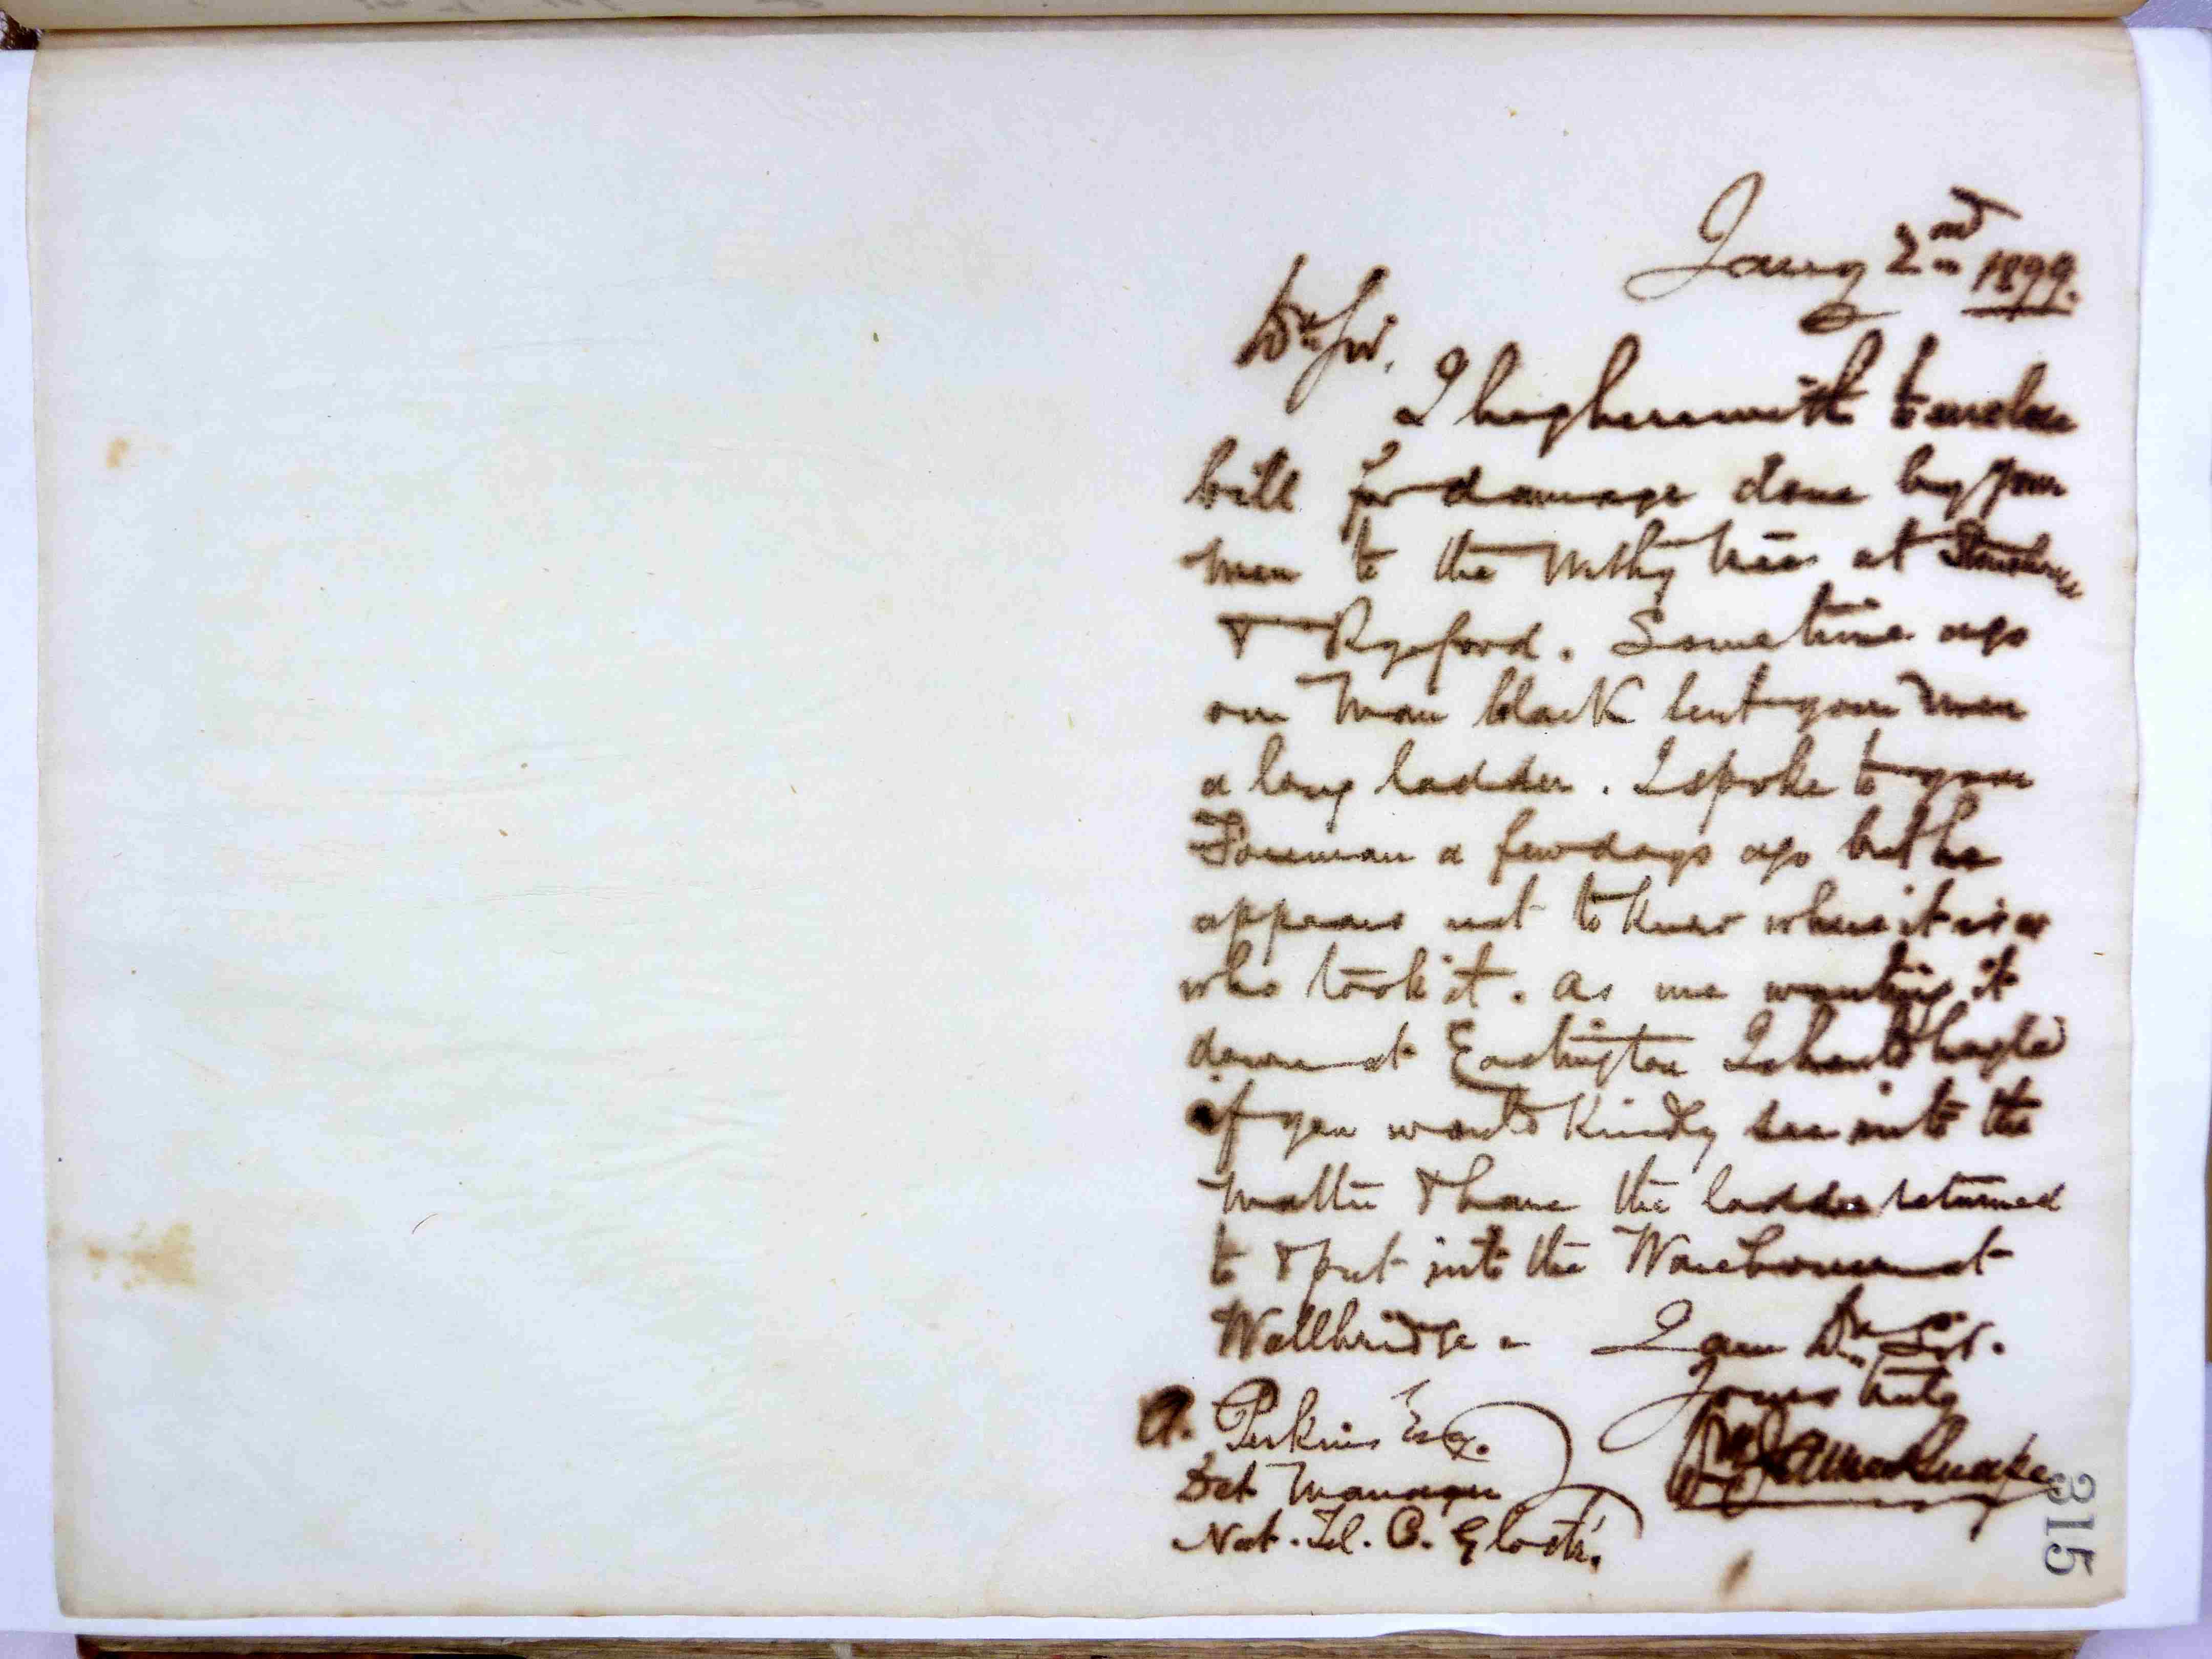 Jany 2nd 1899.
Dr Sir,
I beg herewith to enclose
bill for damage done by your
men to the Withy trees at Stonehouse
& Ryeford. Sometime ago
our Man Black lent your men
a long ladder. I spoke to your
Foreman a few days ago but he
appears not to know where it is or
who took it. As we wanting it
down at Eastington I should be glad
if you would kindly see into the
matter & have the ladder returned
to & put into the Warehouse at
Wallbridge. I am Dr Sir.
Yours truly
Wm James Snape
A. Perkins Esq.
Dist Manager
Nat. Tel. C. Glostr.
315